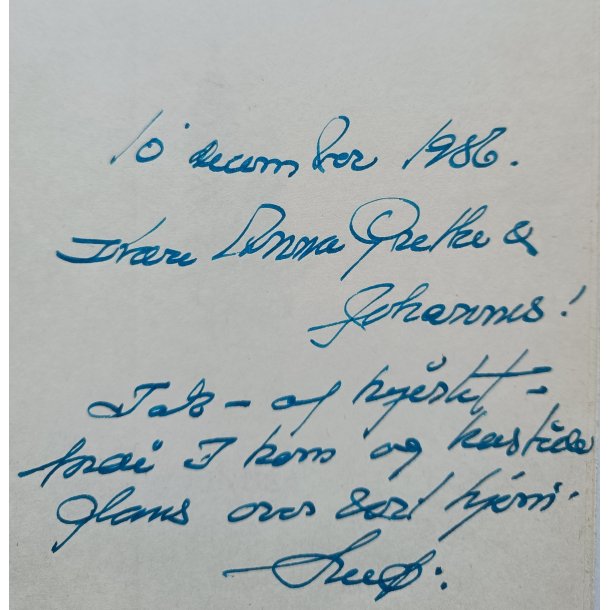 10 december 1986.
Kære Anna Grethe &
Johannes!
Tak - og hjertet -
I kom og kastede
Glans over vort hjem.